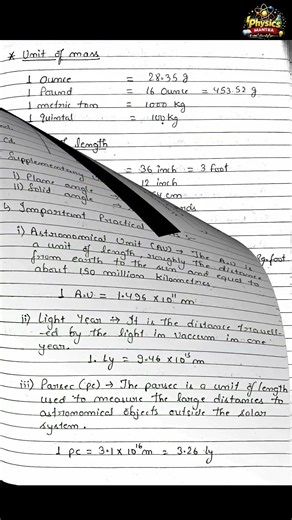 Physics
MANTRA
* Unit of mass
1 Ounce = 28.35 g
1 Pound = 16 Ounce = 453.52 g
1 metric ton = 1000 kg
1 Quintal = 100 kg
length
Supplementary
= 36 inch = 3 foot
i) Plane angle
12 inch
ii) Solid angle
cm
Important Practical
i) Astronomical Unit (AU) → The A.U is
a unit of length, roughly the distance
from earth to the sun and equal to
about 150 million kilometres.
1 A.U = 1.496 X 10¹¹ m
ii) Light Year → It is the distance travell-
ed by the light in vaccum in one
year.
1. Ly = 9.46 X 10¹⁵ m
iii) Parsec (pc) → The parsec is a unit of length
used to measure the large distances to
astronomical objects outside the solar
system.
1 pc = 3.1 X 10¹⁶ m = 3.26 ly